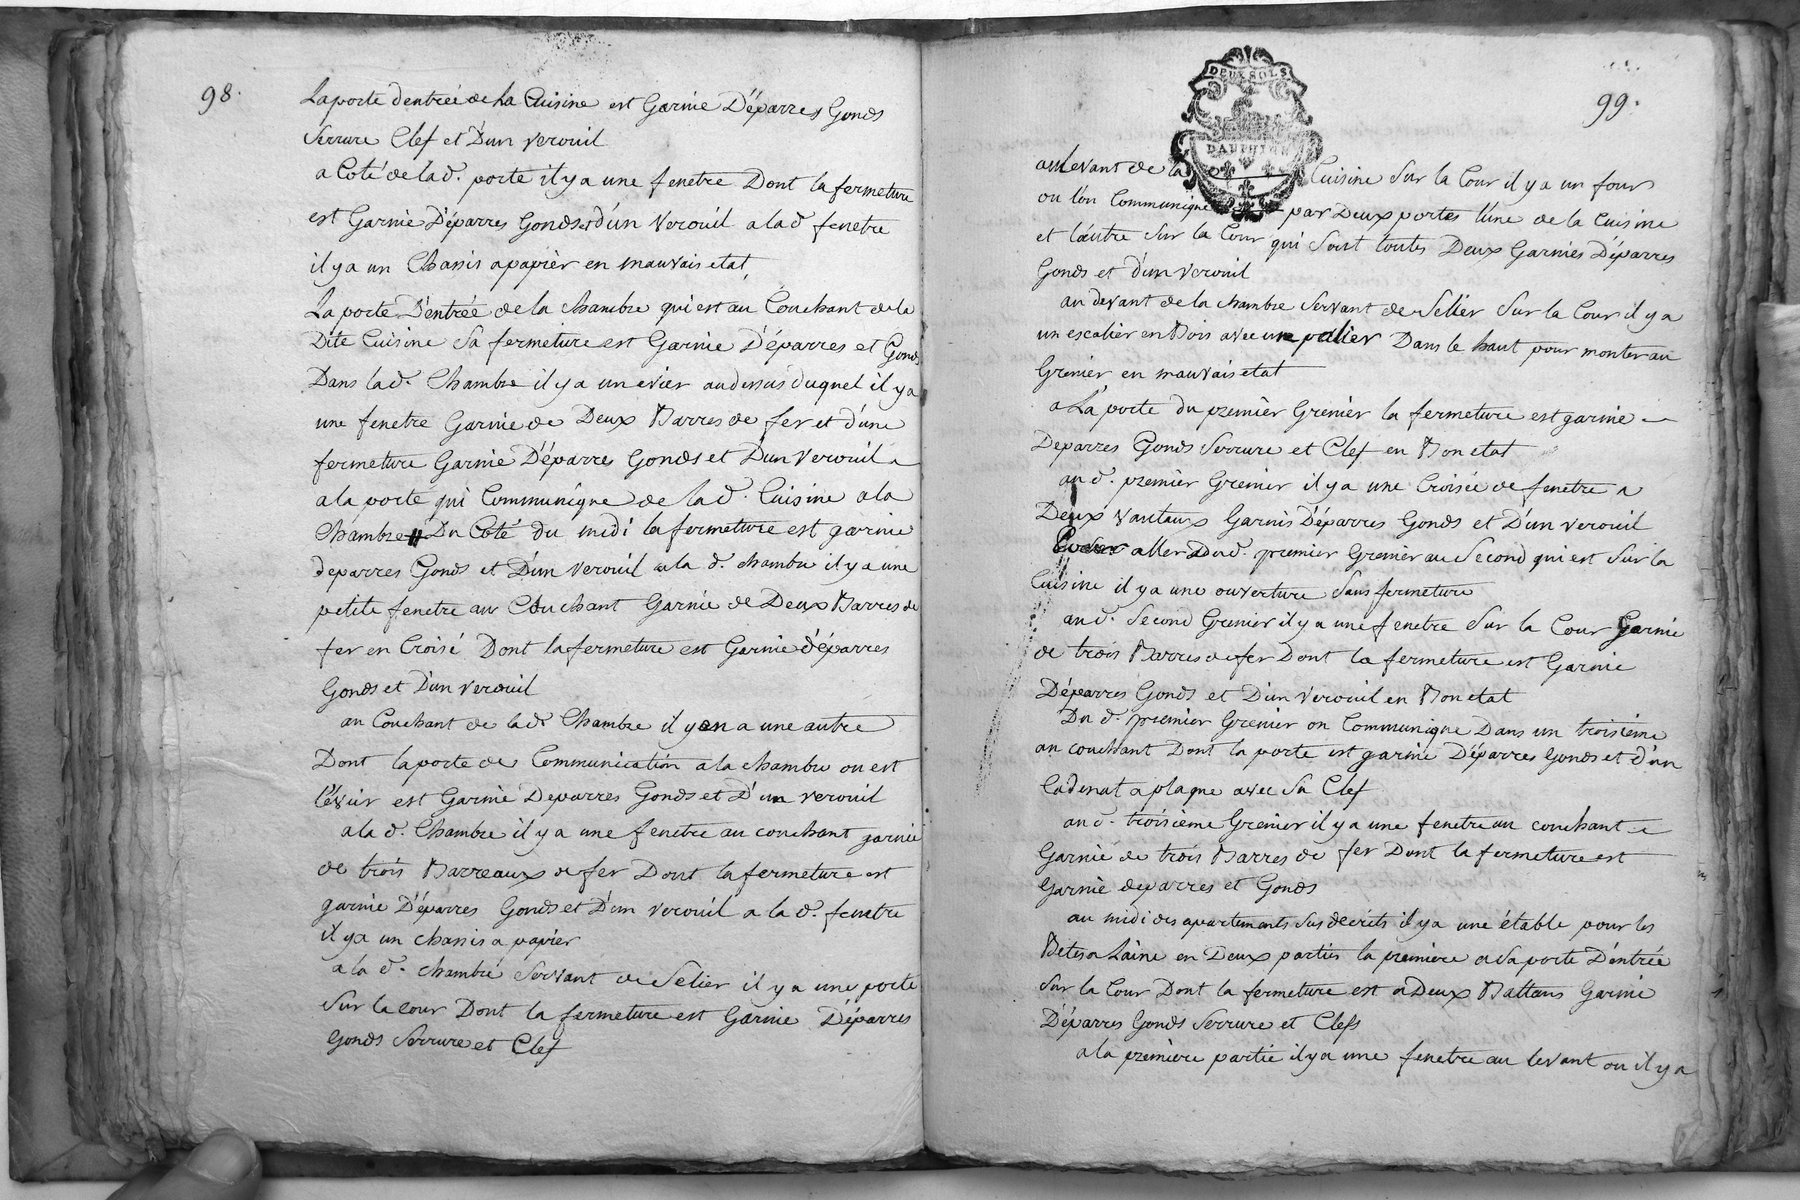 98.
La porte d'entrée de La Cuisine est Garnie D'éparres Gonds
Serrure Clef et D'un verouil
a Coté de la d. porte il y a une fenetre Dont la fermeture
est Garnie D'éparres Gonds et d'un Verouil a la d. fenetre
il y a un Chassis a papièr en mauvais etat
La porte D'entrée de la chambre qui est au Couchant de la
Dite Cuisine Sa fermeture est Garnie D'éparres et Gonds
Dans la d. Chambre il y a un evier au dessus duquel il y a
une fenetre Garnie de Deux Barres de fer et d'une
fermeture Garnie D'éparres Gonds et D'un Verouil
a la porte qui Communique de la d. Cuisine a la
Chambre Du Coté du midi la fermeture est garnie
deparres Gonds et D'un Verouil a la d. chambre il y a une
petite fenetre au Couchant Garnie de Deux Barres de
fer en Croisé Dont la fermeture est Garnie d'éparres
Gonds et D'un verouil
au Couchant de la d. Chambre il y en a une autre
Dont la porte de Communication a la chambre ou est
l'évier est Garnie Deparres Gonds et D'un verouil
a la d. Chambre il y a une fenetre au couchant garnie
de trois Barreaux de fer Dont la fermeture est
garnie D'éparres Gonds et D'un verouil a la d. fenetre
il y a un chassis a papièr
a la d. chambre Servant de Selier il y a une porte
Sur la cour Dont la fermeture est Garnie D'éparres
Gonds Serrure et Clef
DEUX SOLS
DAUPHINE
99.
au levant de la Cuisine Sur la Cour il y a un four
ou l'on Communique par Deux portes l'une de la Cuisine
et l'autre Sur la Cour qui Sont toutes Deux Garnies D'éparres
Gonds et d'un verouil
au devant de la chambre Servant de Selier Sur la Cour il y a
un escalier en Bois avec une palier Dans le haut pour monter au
Grenier en mauvais etat
a La porte du premièr Grenier la fermeture est garnie
Deparres Gonds Serrure et Clef en Bon etat
au d. premier Grenier il y a une Croisée de fenetre a
Deux vantaux Garnis D'éparres Gonds et D'un verouil
aller Du d. premier Grenier au Second qui est Sur la
Cuisine il y a une ouverture Sans fermeture
au d. Second Grenier il y a une fenetre Sur la Cour Garnie
de trois Barres de fer Dont la fermeture est Garnie
D'éparres Gonds et D'un Verouil en Bon etat
Du d. premier Grenier on Communique Dans un troisieme
au couchant Dont la porte est garnie D'éparres Gonds et d'un
Cadenat a plaque avec Sa Clef
au d. troisieme Grenier il y a une fenetre au couchant
Garnie de trois Barres de fer Dont la fermeture est
Garnie deparres et Gonds
au midi des apartements Sus decrits il y a une étable pour les
Betes a Laine en Deux parties la premiere a Sa porte D'entrée
Sur la Cour Dont la fermeture est a Deux Battans Garnie
D'éparres Gonds Serrure et Clefs
a la premiere partie il y a une fenetre au levant ou il y a